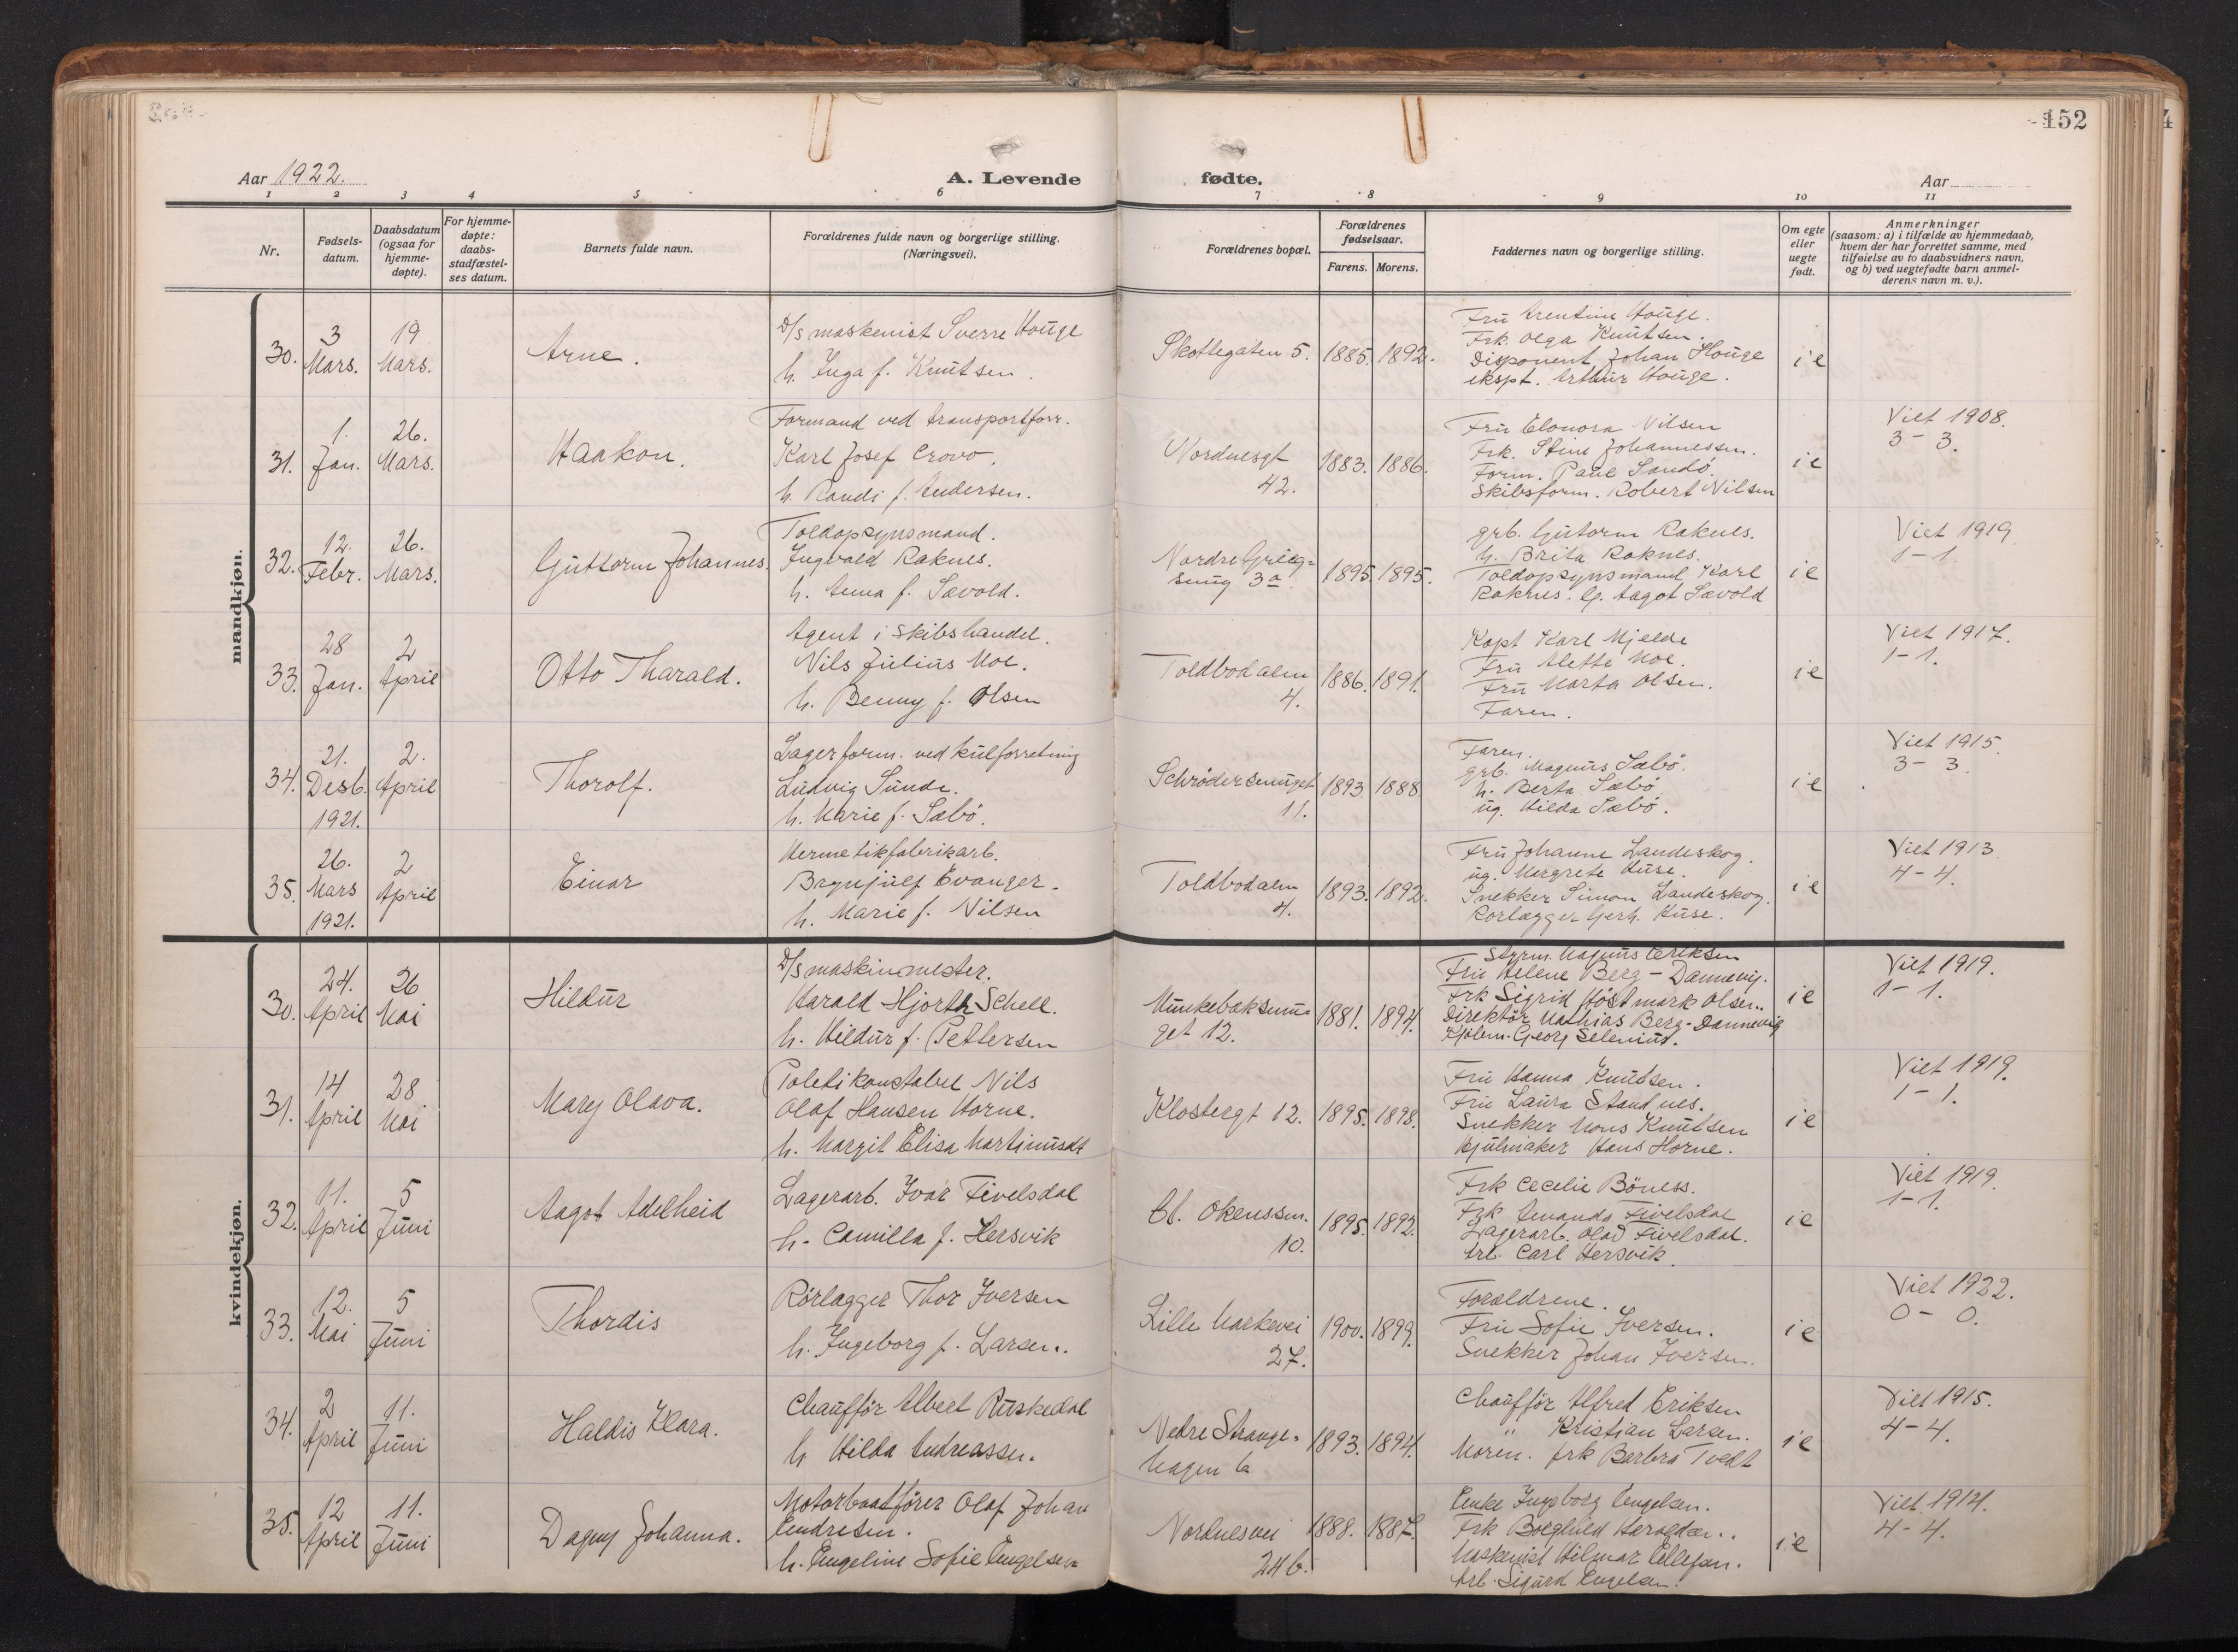 152
Aar 1922.
A. Levende
fødte.
Aar
1 2 3 4 5 6 7 8 9 10 11
Nr.
Fødsels-
datum.
Daabsdatum
(ogsaa for
hjemme-
døpte).
For hjemme-
døpte:
daabs-
stadfæstel-
ses datum.
Barnets fulde navn.
Forældrenes fulde navn og borgerlige stilling.
(Næringsvei).
Forældrenes bopæl.
Forældrenes
fødselsaar.
Farens. Morens.
Faddernes navn og borgerlige stilling.
Om egte
eller
uegte
født.
Anmerkninger
(saasom: a) i tilfælde av hjemmedaab,
hvem der har forrettet samme, med
tilføielse av to daabsvidners navn,
og b) ved uegtefødte barn anmel-
derens navn m. v.).
mandkjøn.
30.
3
Mars.
19
Mars.
Arne.
D/s maskenist Sverre Houge
h. Inga f. Knutsen.
Skottegaten 5.
1885. 1892.
Fru Arentine Houge.
Frk. Olga Knutsen.
Disponent Johan Houge
ekspt. Arthur Houge.
i e
31.
1.
Jan.
26.
Mars.
Haakon.
Formand ved transportforr.
Karl Josef Crovo.
h. Randi f. Andersen.
Nordnesgt
42.
1883. 1886.
Fru Elonora Nilsen
Frk. Stine Johannessen.
Form. Paul Sandö.
Skibsform. Robert Nilsen
i e
Viet 1908.
3 - 3.
32.
12.
Febr.
26.
Mars.
Guttorm Johannes.
Toldopsynsmand.
Ingvald Raknes.
h. Anna f. Sævold.
Nordre Grieg-
smug 3a
1895. 1895.
grb. Gutorm Raknes.
h. Brita Raknes.
Toldopsynsmand Karl
Raknes. Ug. Aagot Sævold
i e
Viet 1919
1 - 1.
33.
28
Jan.
2
April
Otto Tharald.
Agent i skibshandel.
Nils Julius Moe.
h. Benny f. Olsen
Toldbodalm
4.
1886. 1891.
Kapt Karl Mjelde
Fru Alette Moe.
Fru Marta Olsen.
Faren.
i e
Viet 1917.
1 - 1.
34.
21.
Desb.
1921.
2.
April
Thorolf.
Lagerform. ved kulforretning
Ludvig Sunde.
h. Marie f. Sæbö.
Schrödersmuget
11.
1893 1888.
Faren.
grb. Magnus Sæbö.
h. Berta Sæbö
ug. Hilda Sæbö.
i e
Viet 1915.
3 - 3.
35.
26.
Mars
1921.
2
April
Einar
Hermetikfabrikarb.
Brynjulf Evanger.
h. Marie f. Nilsen
Toldbodalm
4.
1893. 1892.
Fru Johanne Landeskog.
ug. Margrete Huse.
Snekker Simon Landeskog.
Rorlægger Gerh. Huse.
i e
Viet 1913.
4 - 4.
kvindekjøn.
30.
24.
April
26
Mai
Hildur
D/s maskinmester.
Harald Hjorth Schell.
h. Hildur f. Pettersen
Munkebeksmu-
get 12.
1881. 1894.
Styrm. Magnus Eriksen
Fru Helene Berg-Dannevig.
Frk Sigrid Höstmark Olsen.
Direktör Mathias Berg-Dannevig
Kjölem. Georg Selenius.
i e
Viet 1919.
1 - 1.
31.
14
April
28
Mai
Mary Olava.
Politikonstabel Nils
Olaf Hansen Horne.
h. Margit Elisa Martinusdt
Klostergt 12.
1895. 1898.
Fru Hanna Knutsen.
Fru Laura Standnes.
Snekker Mons Knutsen
Hjulmaker Hans Horne.
i e
Viet 1919.
1 - 1.
32.
11.
April
5
Juni
Aagot Adelheid
Lagerarb. Ivar Fivelsdal
h. Camilla f. Hersvik
Cl. Okenssm.
10.
1895. 1892.
Frk Cecelie Böness.
Frk Amanda Fivelsdal
Lagerarb. Olaf Fivelsdal.
Arb. Carl Hersvik.
i e
Viet 1919.
1 - 1.
33.
12.
Mai
5
Juni
Thordis
Rörlægger Thor Iversen
h. Ingeborg f. Larsen.
Lille Markevei
27.
1900. 1899.
Forældrene.
Fru Sofie Iversen.
Snekker Johan Iversen.
i e
Viet 1922.
0 - 0.
34.
2
April
11.
Juni
Haldis Klara.
Chaufför Albert Ruskedal
h Hilda Andreassen.
Nedre Strange-
hagen 6
1893. 1894.
Chaufför Alfred Eriksen
" Kristian Larsen.
Moren. frk Barbra Tvedt
i e
Viet 1915.
4 - 4.
35.
12
April
11.
Juni
Dagny Johanna.
Motorbaatförer Olaf Johan
Endresen.
h. Engeline Sofie Engelsen
Nordnesvei
24 b.
1888. 1887.
Enke Ingeborg Engelsen.
Frk
Maskenist Hilmar Ellefsen.
Arb. Sigurd Engelsen.
i e
Viet 1914.
4 - 4.